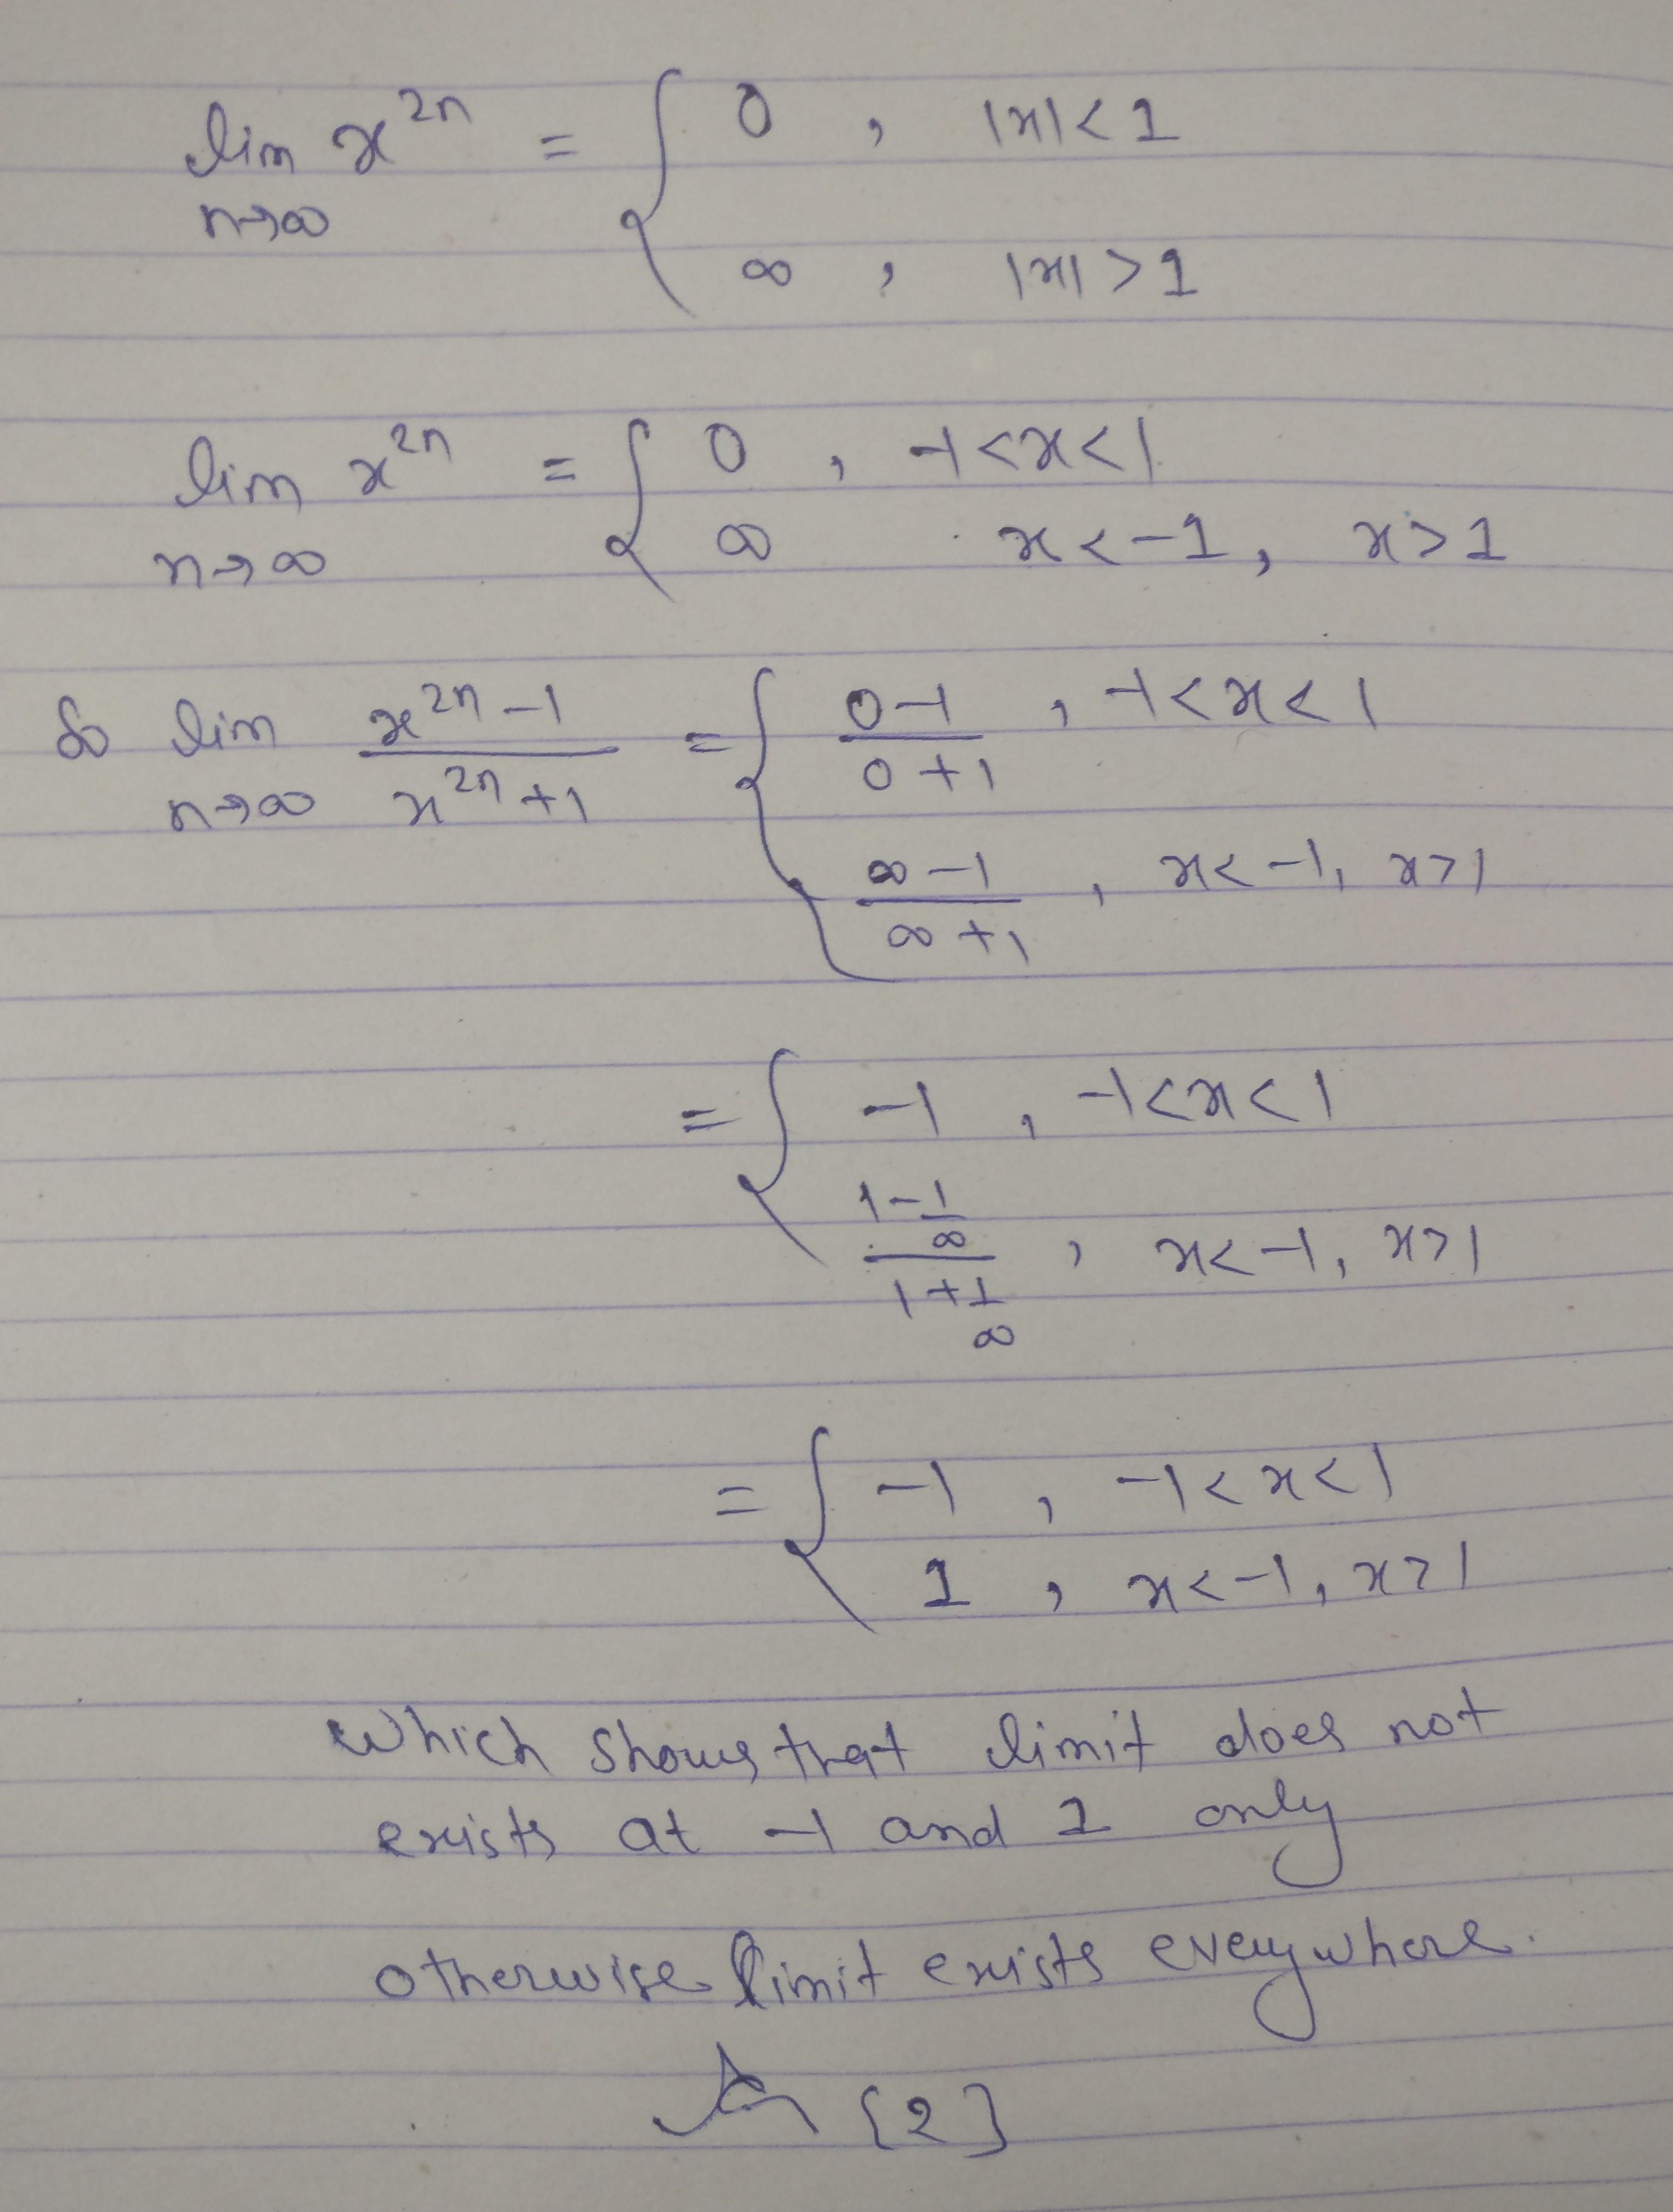 lim x^2n = { 0 , |x| < 1
n→∞
∞ , |x| > 1
lim x^2n = { 0 , -1 < x < 1
n→∞ ∞ x < -1, x > 1
So lim (x^2n - 1)/(x^2n + 1) = { (0-1)/(0+1) , -1 < x < 1
n→∞
(∞-1)/(∞+1) , x < -1, x > 1
= { -1 , -1 < x < 1
(1 - 1/∞)/(1 + 1/∞) , x < -1, x > 1
= { -1 , -1 < x < 1
1 , x < -1, x > 1
Which shows that limit does not
exists at -1 and 1 only
otherwise limit exists everywhere.
An {2}